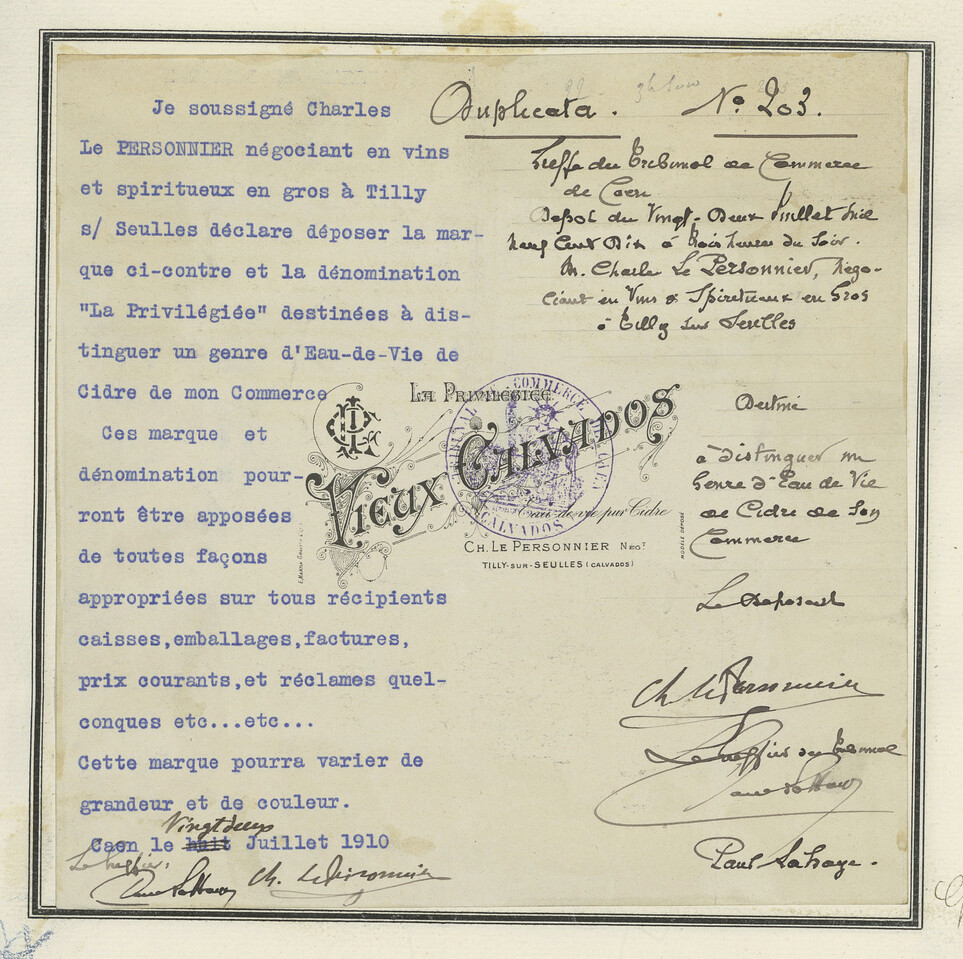 Je soussigné Charles
Le PERSONNIER négociant en vins
et spiritueux en gros à Tilly
s/ Seulles déclare déposer la mar-
que ci-contre et la dénomination
"La Privilégiée" destinées à dis-
tinguer un genre d'Eau-de-Vie de
Cidre de mon Commerce
Ces marque et
dénomination pour-
ront être apposées
de toutes façons
appropriées sur tous récipients
caisses,emballages,factures,
prix courants,et réclames quel-
conques etc...etc...
Cette marque pourra varier de
grandeur et de couleur.
Vingt deux
Caen le huit Juillet 1910
Le Greffier.
Ch. Le Personnier
Duplicata. No 203.
Greffe du Tribunal de Commerce
de Caen
Dépot du Vingt-Deux Juillet Mil
Neuf Cent Dix à trois heures du Soir.
M. Charles Le Personnier, Négo-
ciant en Vins & Spiritueux en Gros
à Tilly sur Seulles
LA PRIVILÉGIÉE
VIEUX CALVADOS
Eau-de-vie pur Cidre
CH. LE PERSONNIER NEGT
TILLY-SUR-SEULLES (CALVADOS)
MODÈLE DÉPOSÉ
TRIBUNAL DE COMMERCE
CAEN
CALVADOS
Destiné
à distinguer un
Genre d'Eau de Vie
de Cidre de Son
Commerce
Le Déposant
Ch Le Personnier
Le Greffier du Tribunal
Paul Lahaye.